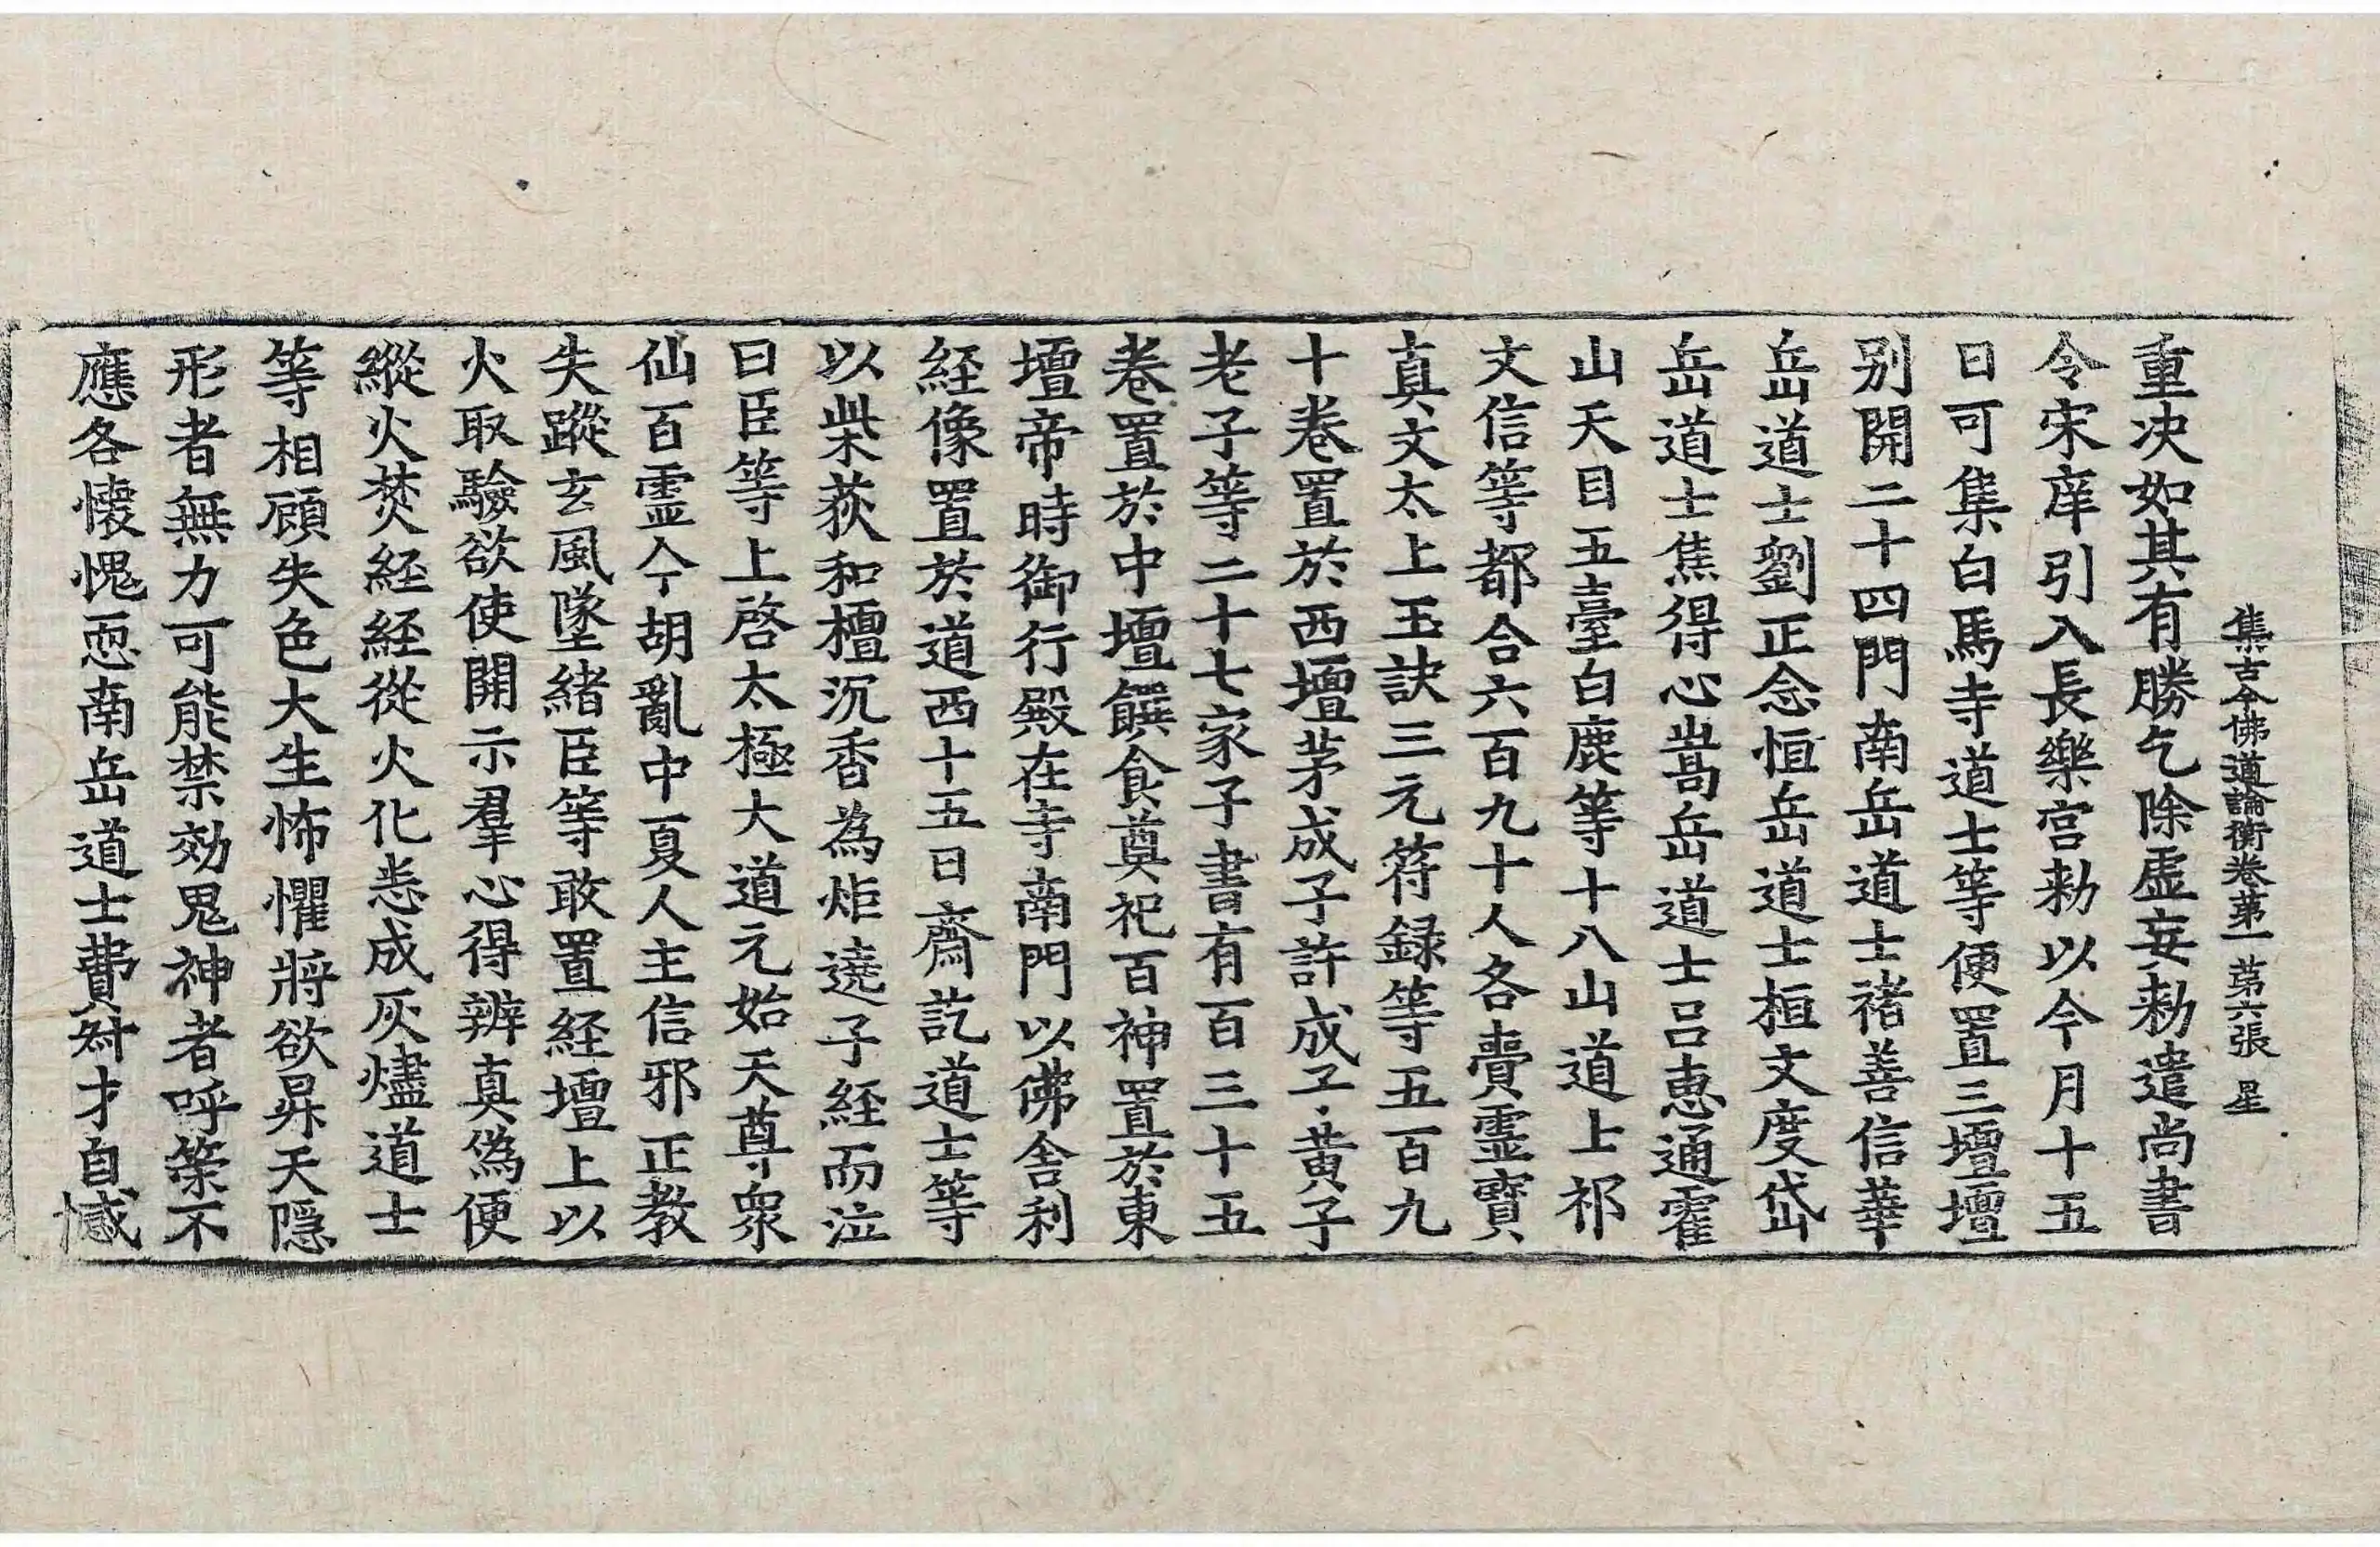 集古今佛道論衡卷第一 第六張 星
重决如其有勝乞除虛妄勑遣尚書
令宋庠引入長樂宫勑以今月十五
日可集白馬寺道士等便置三壇壇
别開二十四門南岳道士褚善信華
岳道士劉正念恒岳道士桓文度岱
岳道士焦得心嵩岳道士吕惠通霍
山天目五臺白鹿等十八山道士祁
文信等都合六百九十人各賷靈寶
真文太上玉訣三元符録等五百九
十卷置於西壇茅成子許成子黄子
老子等二十七家子書有百三十五
卷置於中壇饌食奠祀百神置於東
壇帝時御行殿在寺南門以佛舍利
経像置於道西十五日齋訖道士等
以柴荻和檀沉香為炬遶子経而泣
曰臣等上啓太極大道元始天尊衆
仙百霊今胡亂中夏人主信邪正教
失蹤玄風墜緒臣等敢置経壇上以
火取驗欲使開示羣心得辨真偽便
縱火焚経経從火化悉成灰燼道士
等相顧失色大生怖懼將欲昇天隱
形者無力可能禁効鬼神者呼策不
應各懐愧恧南岳道士費才才自憾